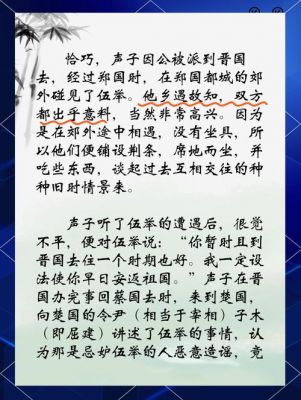 恰巧，声子因公被派到晋国
去，经过郑国时，在郑国都城的郊
外碰见了伍举。他乡遇故知，双方
都出乎意料，当然非常高兴。因为
是在郊外途中相遇，没有坐具，所
以他们便铺设荆条，席地而坐，并
吃些东西，谈起过去互相交往的种
种旧时情景来。
声子听了伍举的遭遇后，很觉
不平，便对伍举说：“你暂时且到
晋国去住一个时期也好。我一定设
法使你早日安返祖国。”声子在晋
国办完事回蔡国去时，来到楚国，
向楚国的令尹（相当于宰相）子木
（即屈建）讲述了伍举的事情，认
为那是忌妒伍举的人恶意造谣，竟